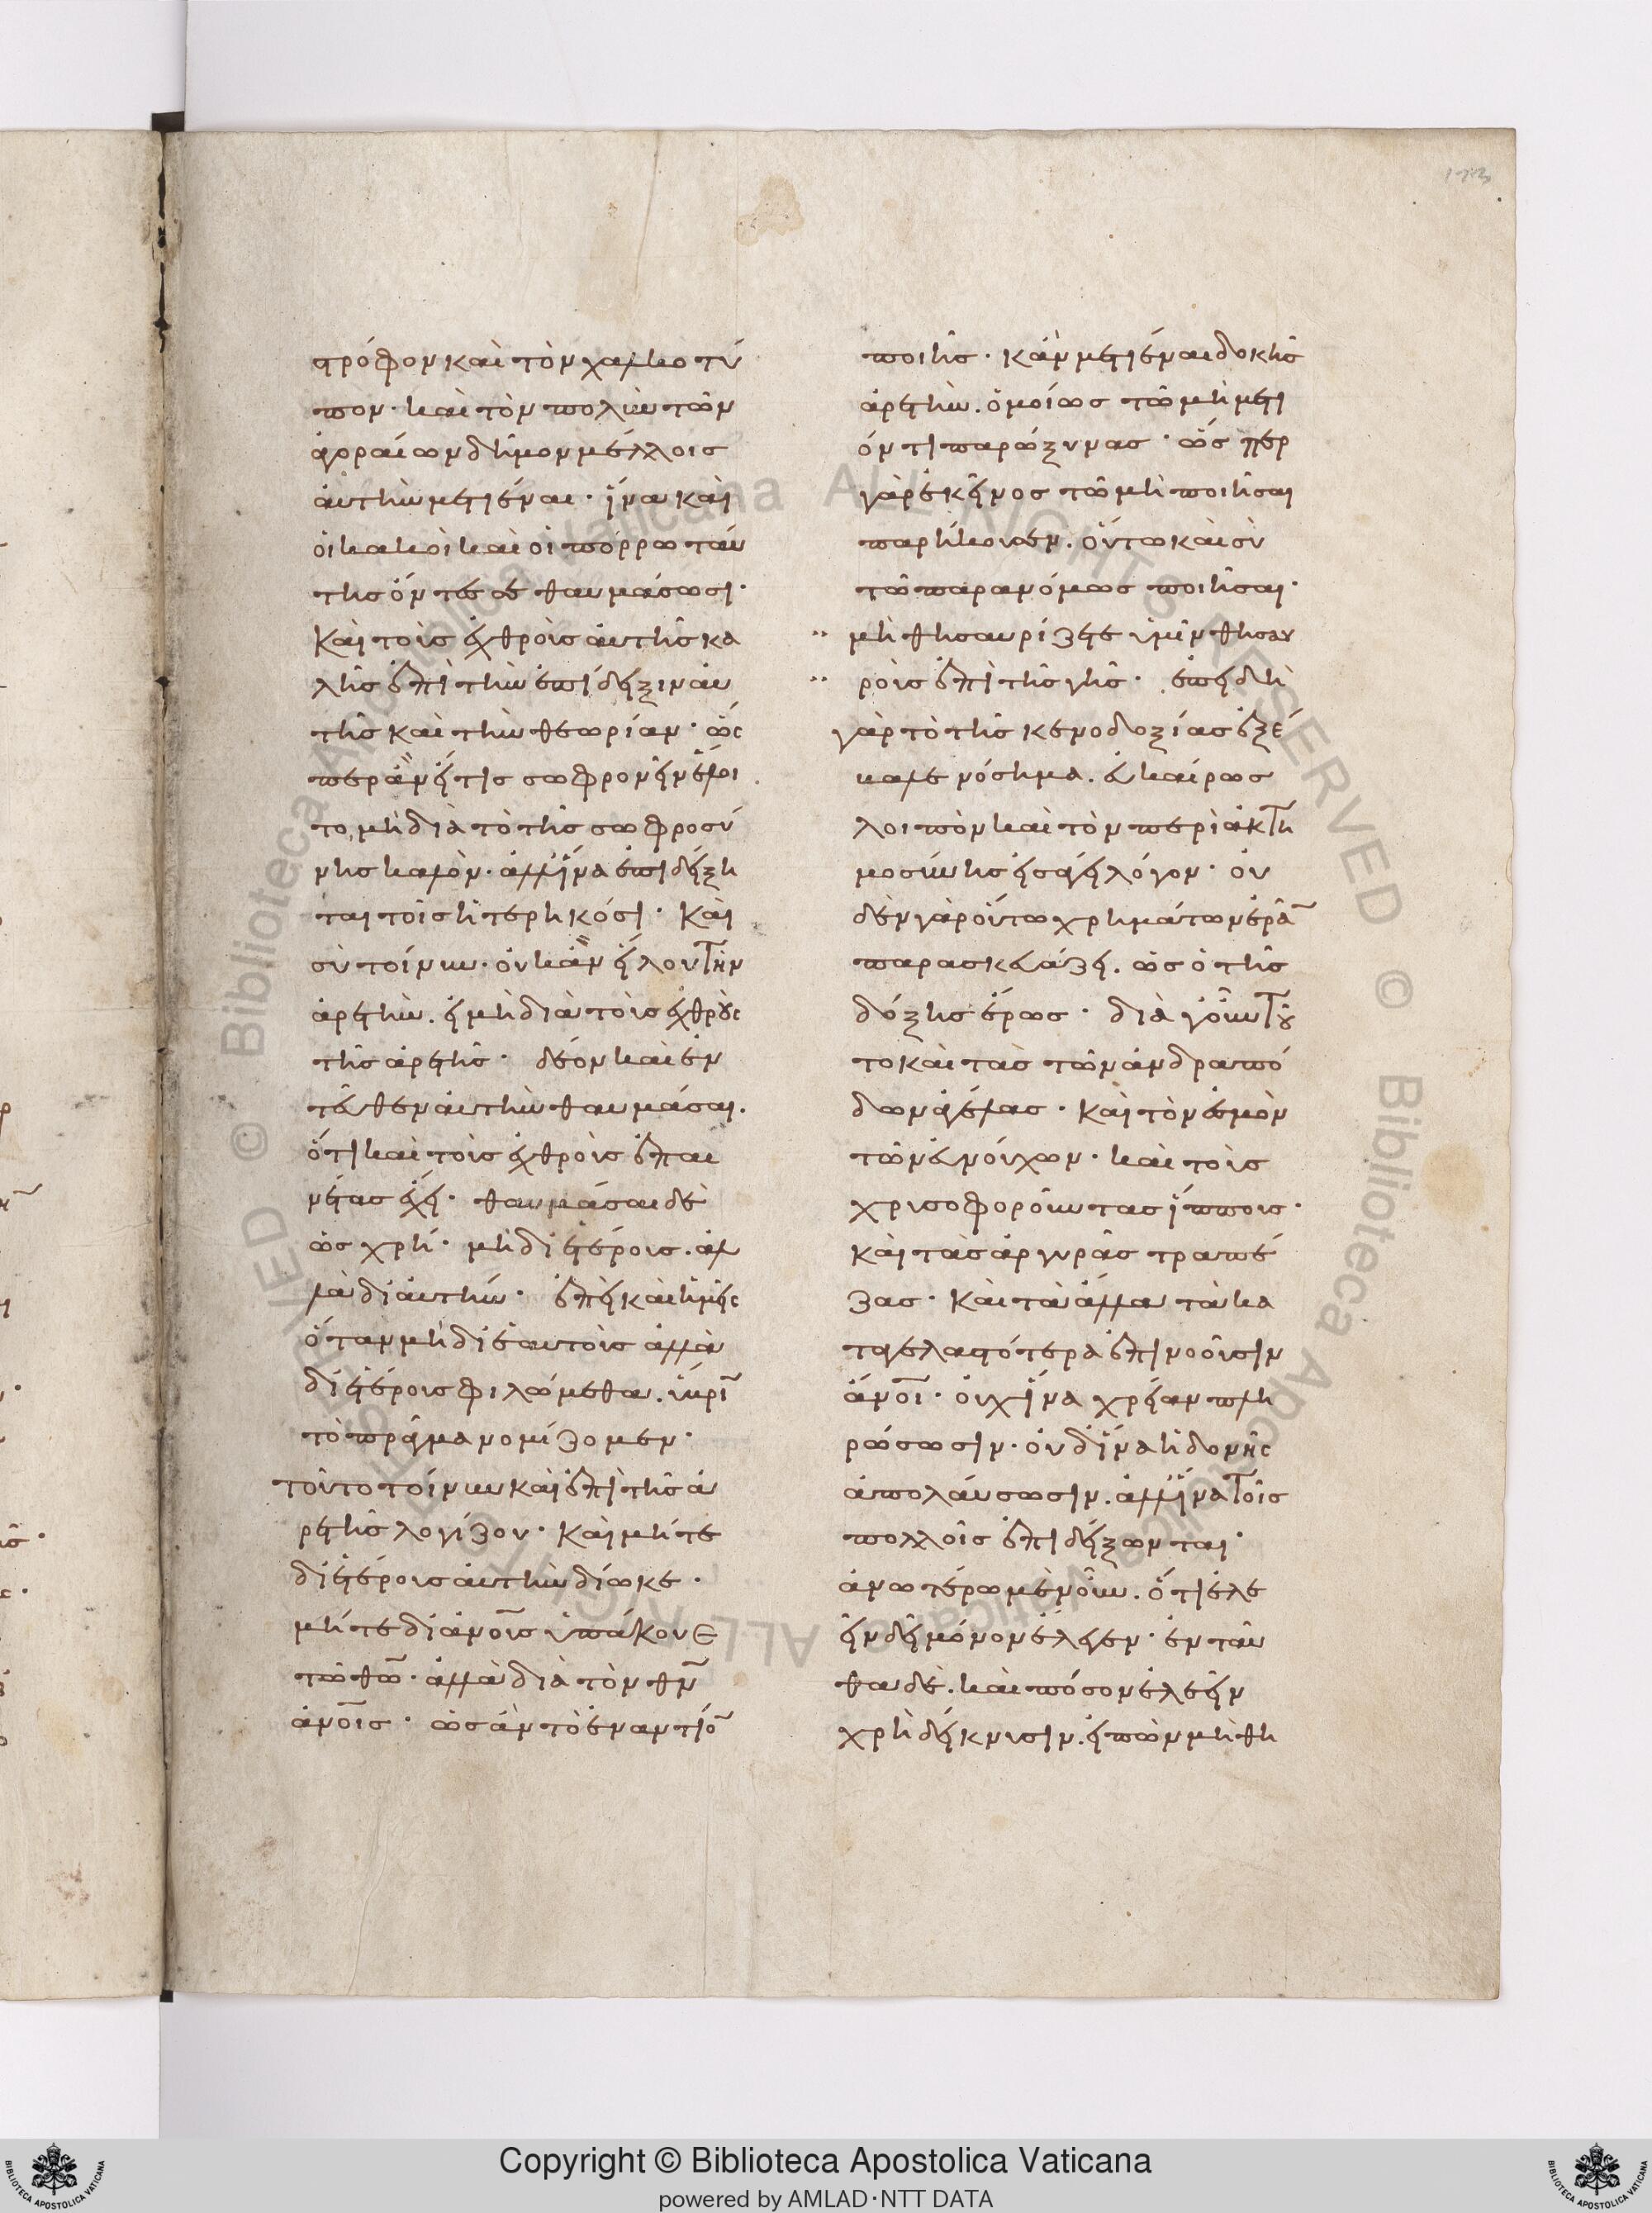 τρόφον καὶ τὸν χαλκοτύ
πον· καὶ τὸν πολὺν τῶν
ἀγοραίων δῆμον μέλλοις
αὐτὴν μετιέναι· ἵνα καὶ
οἱ κακοὶ καὶ οἱ πόρρω ταύ
της ὄντές σε θαυμάσωσι·
Καὶ τοὺς ἐχθροὺς αὐτῆς κα
λῆς ἐπὶ τὴν ἐπίδειξιν αὐ
τῆς καὶ τὴν θεωρίαν· ὥς
περ ἂν εἴ τις σωφρονεῖν ἕλοι
το, μὴ διὰ τὸ τῆς σωφροσύ
νης καλὸν· ἀλλ' ἵνα ἐπιδείξη
ται τοῖς ἡτερηκόσι· Καὶ
σὺ τοίνυν· οὐκ ἂν εἵλου τὴν
ἀρετὴν. εἰ μὴ διὰ τοὺς ἐχθροὺς
τῆς ἀρετῆς· δέον καὶ ἐν
τεῦθεν αὐτὴν θαυμάσαι.
ὅτι καὶ τοὺς ἐχθροὺς ἐπαι
νέτας ἔχει· θαυμάσαι δὲ
ὡς χρή· μὴ δι' ἑτέρους. ἀλ
λὰ δι' αὐτήν· ἐπεὶ καὶ ἡμεῖς
ὅταν μὴ δι' ἑαυτοὺς ἀλλὰ
δι' ἑτέρους φιλώμεθα. ὕβριν
τὸ πρᾶγμα νομίζομεν·
τοῦτο τοίνυν καὶ ἐπὶ τῆς ἀ
ρετῆς λογίζου· Καὶ μήτε
δι' ἑτέρους αὐτὴν δίωκε·
μήτε δι' ἀνους ὑπάκουε
τῶ θω· ἀλλὰ διὰ τὸν θν
ἀνοις· ὡς ἂν τὸ ἐναντίον
ποιῆς· κἂν μετιέναι δοκῆς
ἀρετὴν. ὁμοίως τῶ μὴ μετι
όντι παρώξυνας· ὥς περ
γὰρ ἐκεῖνος τῶ μὴ ποιῆσαι
παρήκουσεν. οὕτω καὶ σὺ
τῶ παρανόμως ποιῆσαι·
μὴ θησαυρίζετε ὑμῖν θησαυ
ροὺς ἐπὶ τῆς γῆς· ἐπειδὴ
γὰρ τὸ τῆς κενοδοξίας ἐξέ
βαλε νόσημα. εὐκαίρως
λοιπὸν καὶ τὸν περὶ ἀκτη
μοσύνης εἰσάγει λόγον· οὐ
δὲν γὰρ οὕτω χρημάτων ἐρᾶν
παρασκευάζει. ὡς ὁ τῆς
δόξης ἔρως· διὰ γοῦν τοῦ
το καὶ τὰς τῶν ἀνδραπό
δων ἀγέλας· Καὶ τὸν ἑσμὸν
τῶν εὐνούχων· καὶ τοὺς
χρυσοφοροῦντας ἵππους·
Καὶ τὰς ἀργυρᾶς τραπέ
ζας· Καὶ τὰ ἄλλα τὰ κα
ταγελαστότερα ἐπινοοῦσιν
ἄνοι· οὐχ ἵνα χρείαν πλη
ρώσωσιν· οὐδ' ἵνα ἡδονῆς
ἀπολαύσωσιν. ἀλλ' ἵνα τοῖς
πολλοῖς ἐπιδείξωνται·
ἀνωτέρω μὲν οὖν. ὅτι ἐλε
εῖν δεῖ μόνον ἔλεγεν· ἐνταῦ
θα δὲ. καὶ πόσον ἐλεεῖν
χρὴ δείκνυσιν. εἰπὼν μὴ θη
Copyright © Biblioteca Apostolica Vaticana
powered by AMLAD·NTT DATA